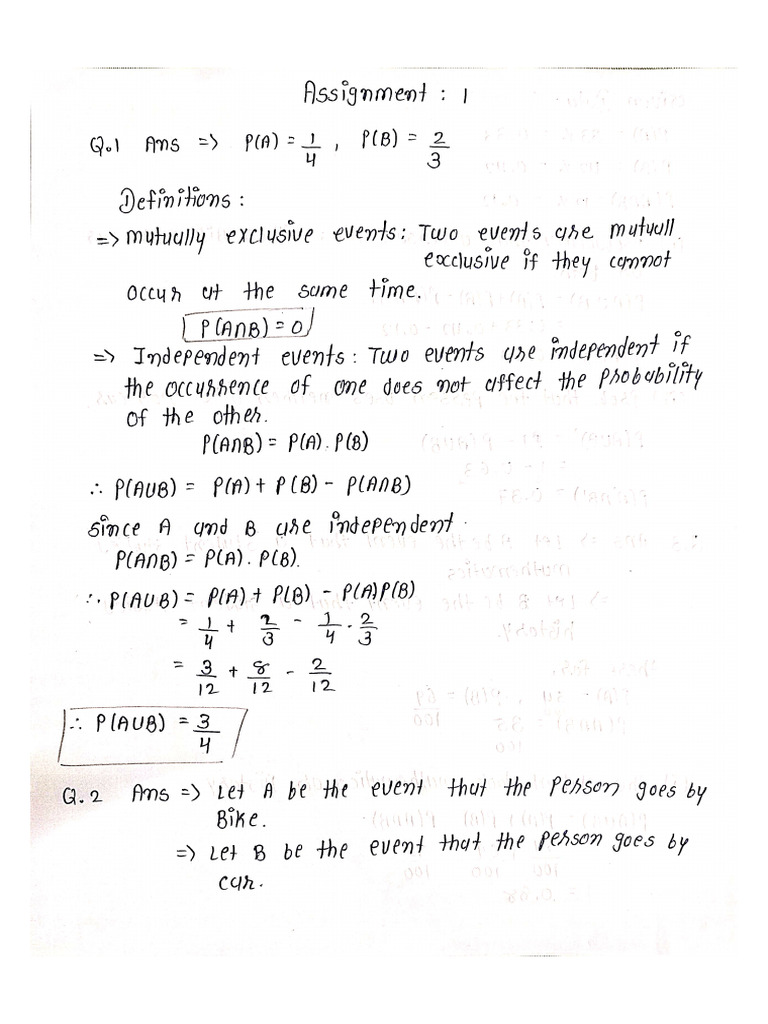 Assignment : 1
Q.1 Ans => P(A) = 1/4 , P(B) = 2/3
Definitions :
=> mutually exclusive events : Two events are mutuall
exclusive if they cannot
occur at the same time.
P(A∩B) = 0
=> Independent events : Two events are independent if
the occurrence of one does not affect the Probability
of the other.
P(A∩B) = P(A) . P(B)
∴ P(A∪B) = P(A) + P(B) - P(A∩B)
since A and B are independent.
P(A∩B) = P(A) . P(B).
∴ P(A∪B) = P(A) + P(B) - P(A)P(B)
= 1/4 + 2/3 - 1/4 . 2/3
= 3/12 + 8/12 - 2/12
∴ P(A∪B) = 3/4
Q.2 Ans => Let A be the event that the Person goes by
Bike.
=> Let B be the event that the person goes by
car.